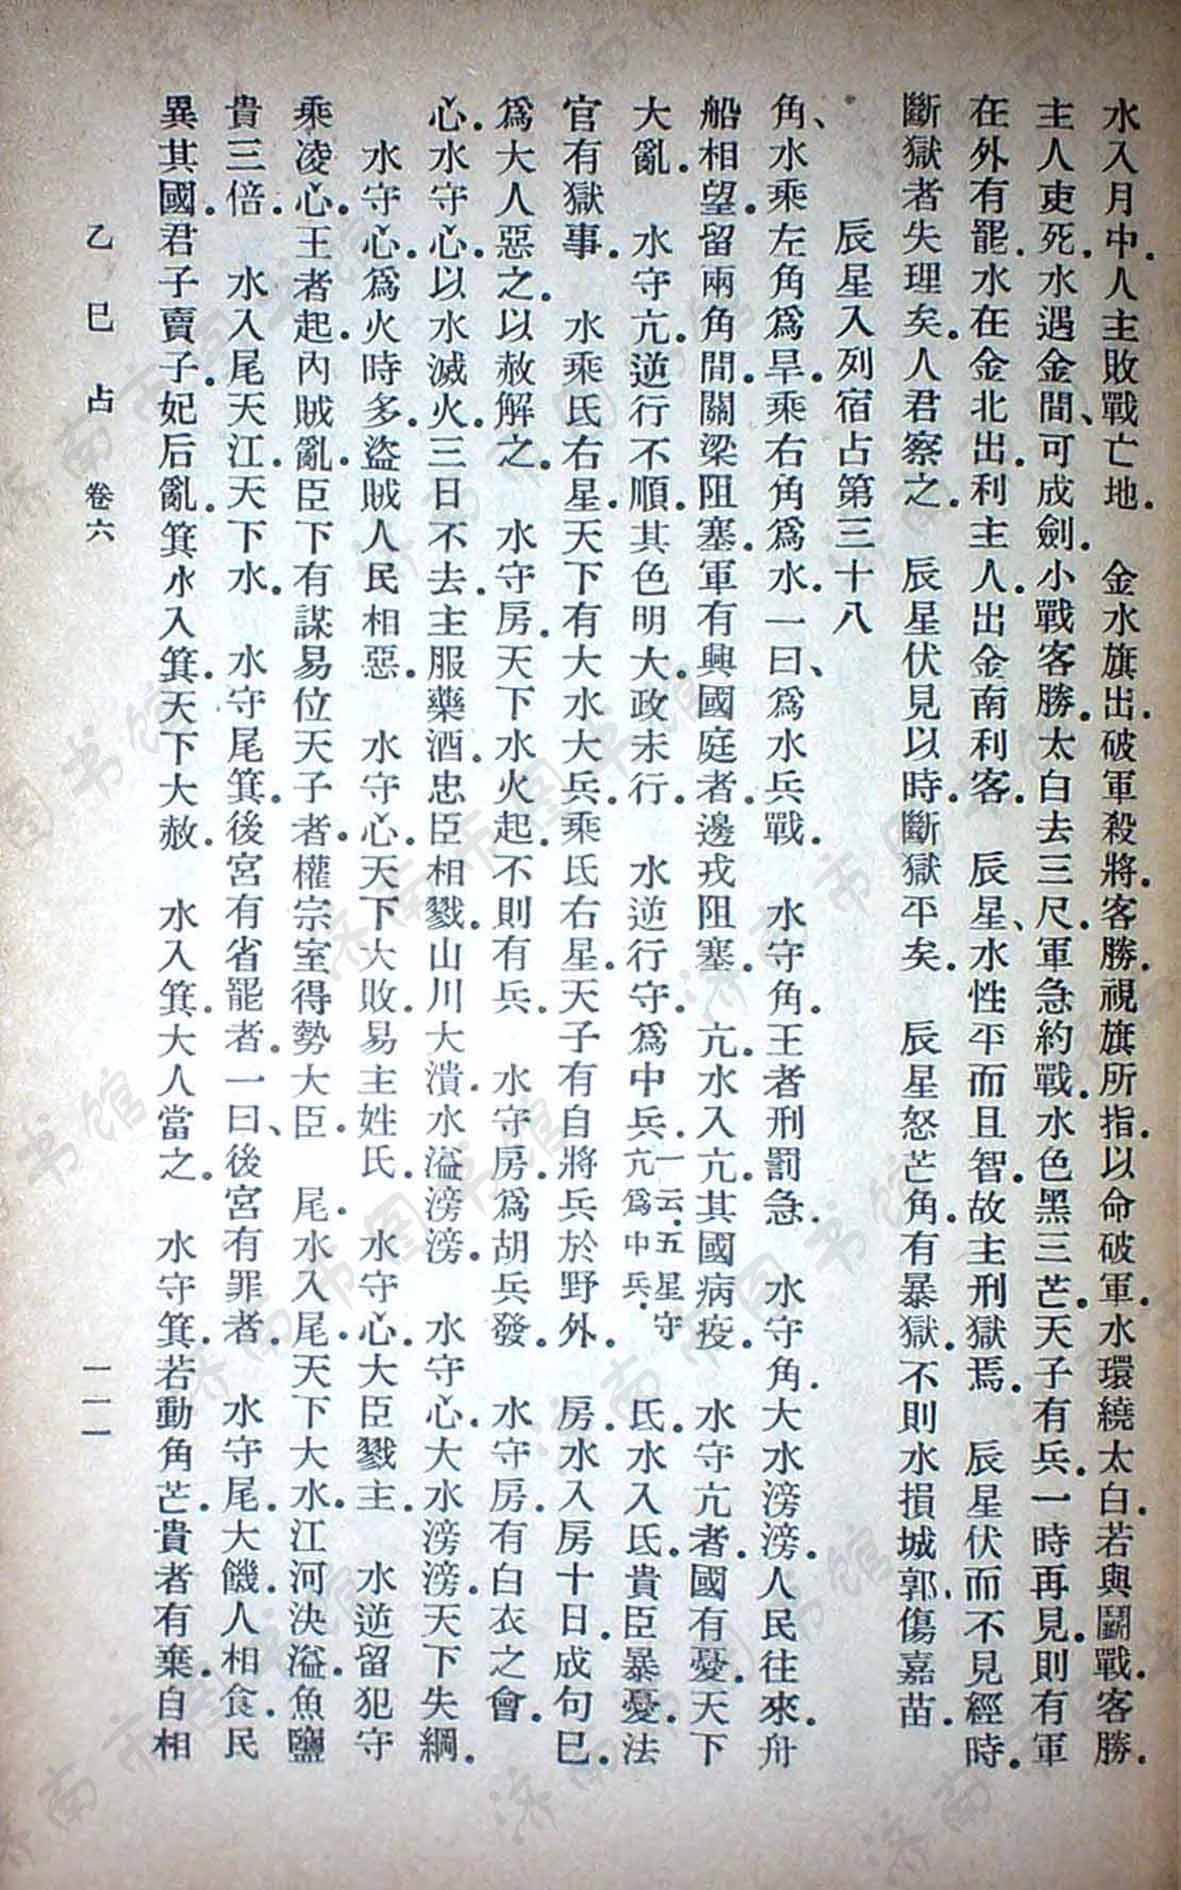 水入月中.人主敗戰亡地.　金水旗出.破軍殺將.客勝.視旗所指.以命破軍.水環繞太白.若與鬭戰.客勝.
主人吏死.水遇金間、可成劍.小戰客勝.太白去三尺.軍急約戰.水色黑三芒.天子有兵.一時再見.則有軍
在外有罷.水在金北出.利主人.出金南利客.　辰星、水性平而且智.故主刑獄焉.　辰星伏而不見經時.
斷獄者失理矣.人君察之.　辰星伏見以時.斷獄平矣.　辰星怒芒角.有暴獄.不則水損城郭、傷嘉苗.
辰星入列宿占第三十八
角、水乘左角爲旱.乘右角爲水.一曰、爲水兵戰.　水守角.王者刑罰急.　水守角.大水滂滂.人民往來.舟
船相望.留兩角間.關梁阻塞.軍有興國庭者.邊戎阻塞.　亢.水入亢.其國病疫.　水守亢者.國有憂.天下
大亂.　水守亢.逆行不順.其色明大.政未行.　水逆行守.爲中兵.一云.五星守亢爲中兵.　氐.水入氐.貴臣暴憂.法
官有獄事.　水乘氐右星.天下有大水大兵.乘氐右星.天子有自將兵於野外.　房.水入房十日.成句巳.
爲大人惡之.以赦解之.　水守房.天下水火起.不則有兵.　水守房.爲胡兵發.　水守房.有白衣之會.
心.水守心.以水滅火.三日不去.主服藥酒.忠臣相戮.山川大潰.水溢滂滂.　水守心.大水滂滂.天下失綱.
水守心.爲火時多.盜賊人民相惡.　水守心.天下大敗.易主姓氏.　水守心.大臣戮主.　水逆留犯守
乘凌心.王者起.內賊亂.臣下有謀易位天子者.權宗室得勢大臣.　尾.水入尾.天下大水.江河決溢.魚鹽
貴三倍.　水入尾天江.天下水.　水守尾箕.後宮有省罷者.一曰、後宮有罪者.　水守尾.大饑.人相食.民
異其國.君子賣子.妃后亂.箕水入箕.天下大赦.　水入箕.大人當之.　水守箕.若動角芒.貴者有棄.自相
乙巳占　卷六　一一一
濟南市图书馆